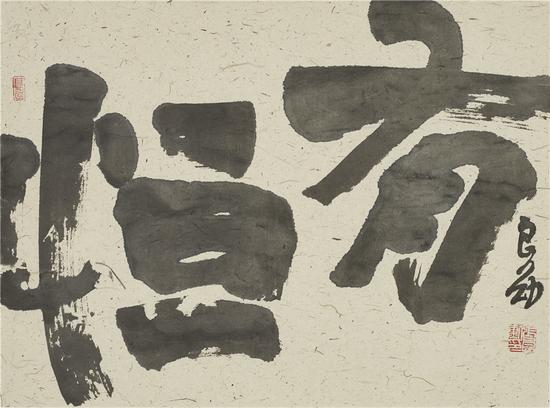 有恒
良